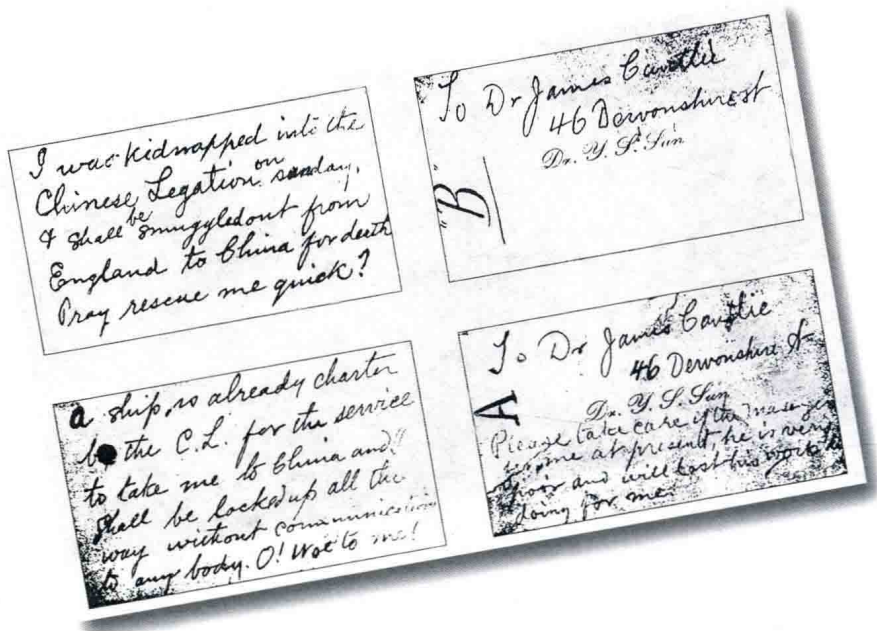 I was kidnapped into the
Chinese Legation on sunday.
& shall be smuggled out from
England to China for death
Pray rescue me quick?
To Dr James Cantlie
46 Devonshire st
Dr. Y. S. Sun
"B"
a ship is already charter
by the C.L. for the service
to take me to China and I
shall be locked up all the
way without communication
to any body. O! Woe to me!
To Dr James Cantlie
46 Devonshire St
A
Dr. Y. S. Sun
Please take care of the messenger
for me at present he is very
poor and will lost his work by
doing for me.